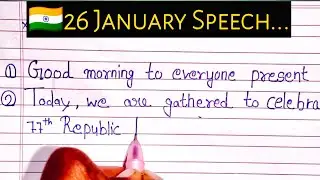 26 January Speech...
① Good morning to everyone present
② Today, we are gathered to celebra
77th Republic